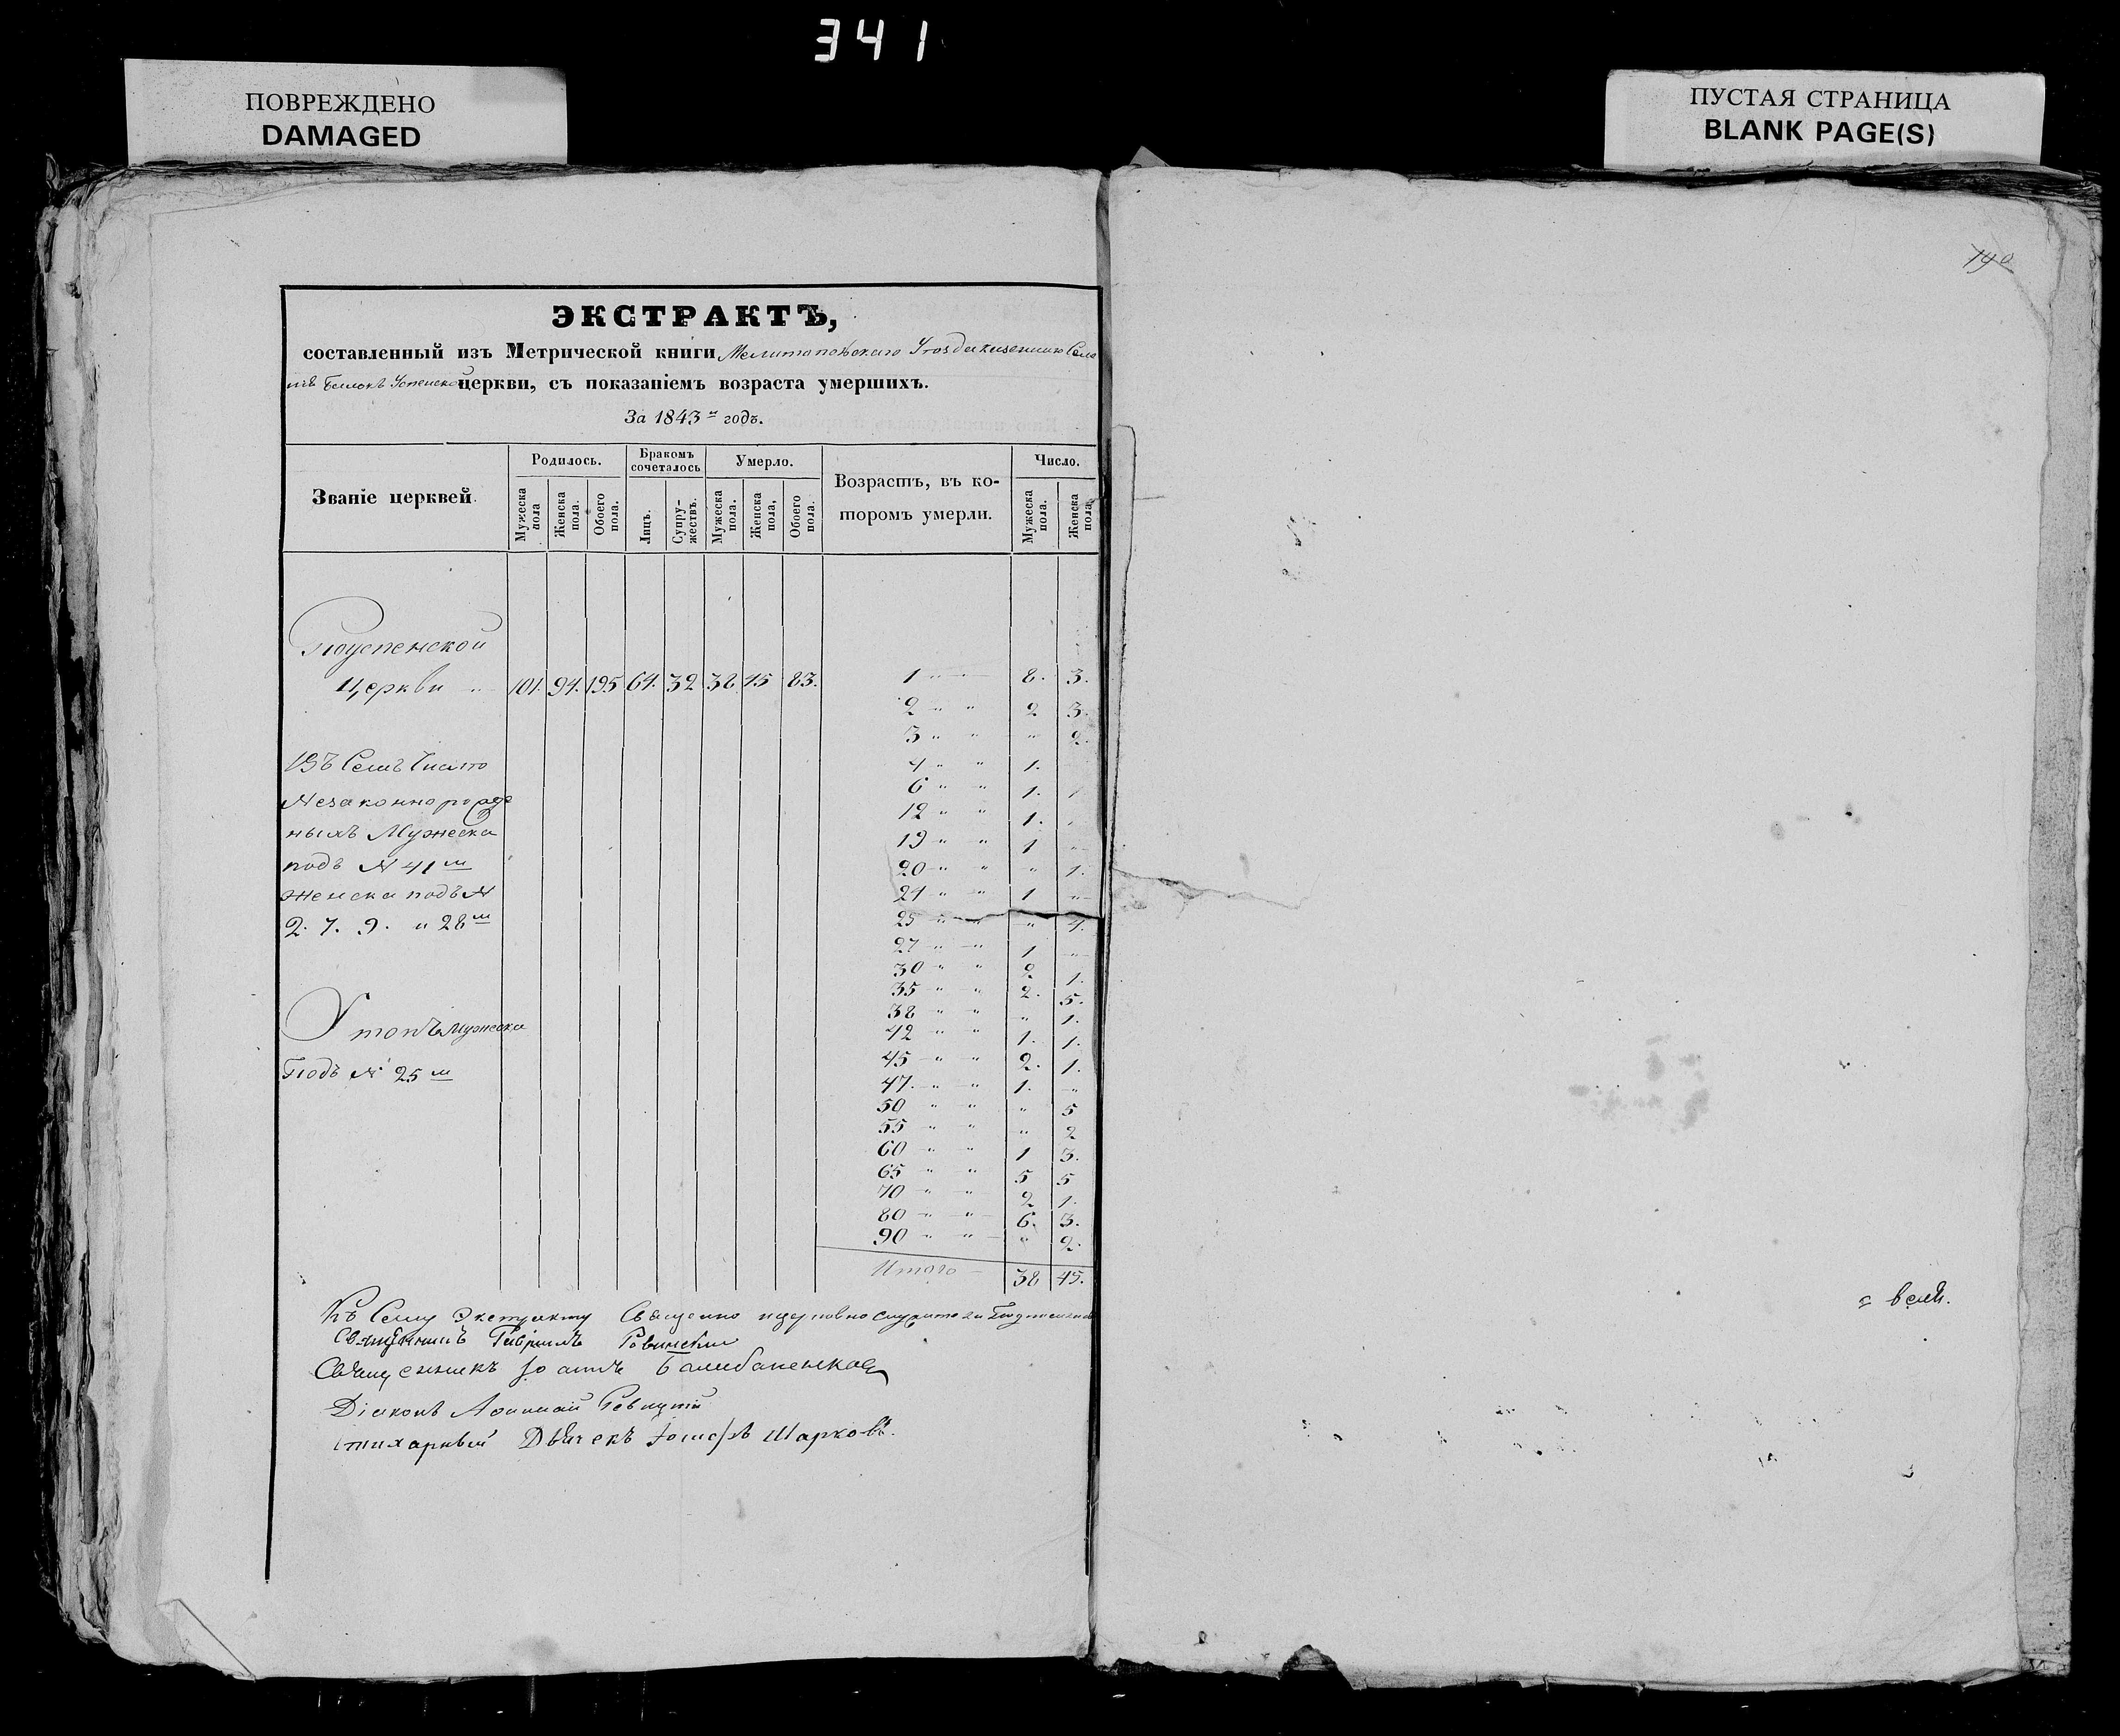 341
ПОВРЕЖДЕНО
DAMAGED
ПУСТАЯ СТРАНИЦА
BLANK PAGE(S)
190
ЭКСТРАКТЪ,
составленный изъ Метрической книги Мелитопольскаго Уезда казеннаго Села
Успенской церкви, съ показаніемъ возраста умершихъ.
За 1843й годъ.
Званіе церквей.
Родилось.
Бракомъ сочеталось
Умерло.
Возрастъ, въ которомъ умерли.
Число.
Мужеска пола
Женска пола.
Обоего пола.
Лицъ.
Супружествъ.
Мужеска пола.
Женска пола,
Обоего пола.
Мужеска пола.
Женска пола
По успенской
Церкви " 101. 94. 195 64. 32 38 45 83. 1 " 8. 3.
2 " " 2 3.
3 " " " 2.
Въ Семъ Числѣ 4 " " 1.
6 " " 1.
Незаконнорожде 12 " " 1.
ныхъ Мужеска 19 " " 1 "
подъ № 41м 20 " " " 1.
Женска подъ № 24 " " 1 "
2. 7. 9. и 28м 25 " " " 4.
27 " " 1 "
30 " " 2 1.
35 " " 2. 5.
38 " " " 1.
Утопъ Мужеска 42 " " 1. 1.
45 " " 2. 1.
Подъ № 25м 47. " " 1. "
50 " " " 5
55 " " " 2
60 " " 1 3.
65 " " 5 5
70 " " 2 1.
80 " " 6. 3.
90 " " " 2.
Итого 38 45.
Къ Сему Экстракту Священно церковнослужители
Священникъ Гавріилъ
Священникъ Іоаннъ
Діаконъ
стихарный Дьячекъ Шарковъ.